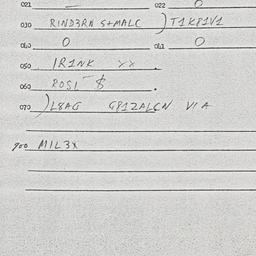 021 — 022 O
030 RIND3RN S+MALC ) T1KP1V1
040 O 041 O
050 IR1NK XX .
060 ROS1 — $ .
070 ) L8AG G812ALCN V1A
900 MIL3X